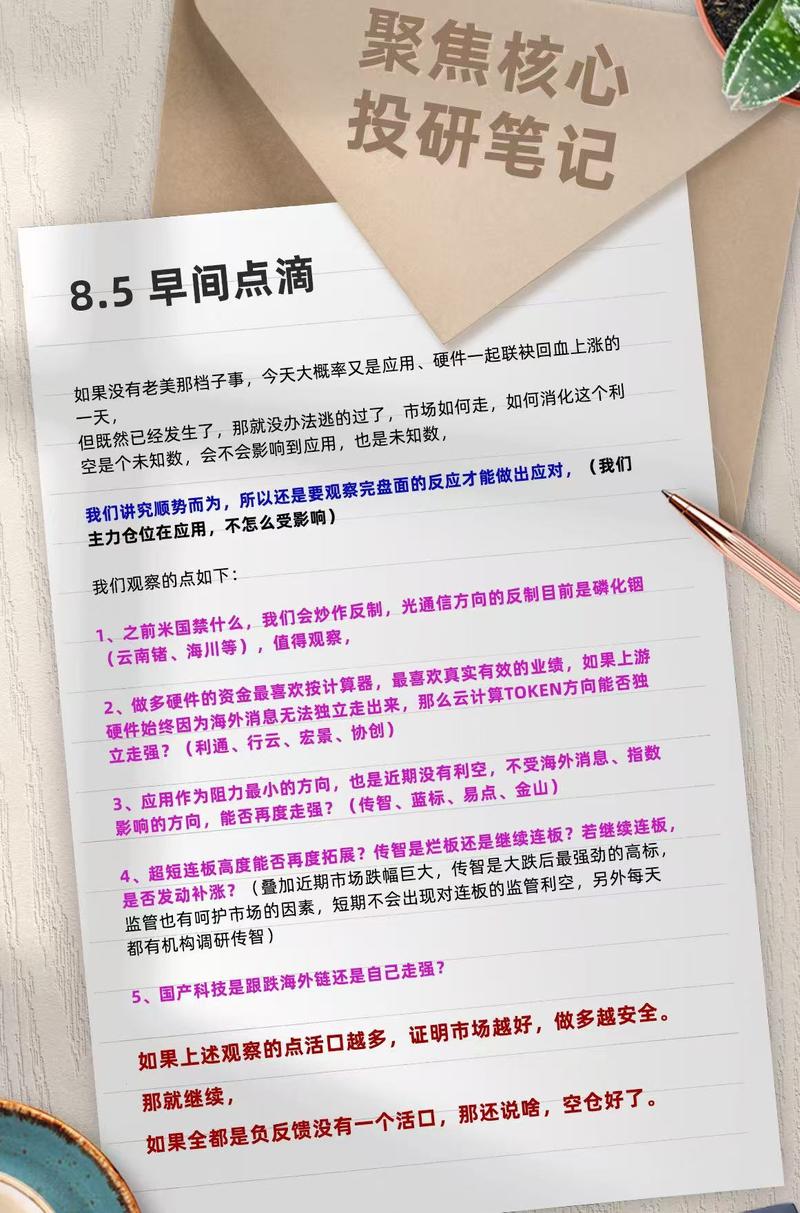 聚焦核心
投研笔记
8.5 早间点滴
如果没有老美那档子事，今天大概率又是应用、硬件一起联袂回血上涨的
一天，
但既然已经发生了，那就没办法逃的过了，市场如何走，如何消化这个利
空是个未知数，会不会影响到应用，也是未知数，
我们讲究顺势而为，所以还是要观察完盘面的反应才能做出应对，（我们
主力仓位在应用，不怎么受影响）
我们观察的点如下：
1、之前米国禁什么，我们会炒作反制，光通信方向的反制目前是磷化铟
（云南锗、海川等），值得观察，
2、做多硬件的资金最喜欢按计算器，最喜欢真实有效的业绩，如果上游
硬件始终因为海外消息无法独立走出来，那么云计算TOKEN方向能否独
立走强？（利通、行云、宏景、协创）
3、应用作为阻力最小的方向，也是近期没有利空，不受海外消息、指数
影响的方向，能否再度走强？（传智、蓝标、易点、金山）
4、超短连板高度能否再度拓展？传智是烂板还是继续连板？若继续连板，
是否发动补涨？（叠加近期市场跌幅巨大，传智是大跌后最强劲的高标，
监管也有呵护市场的因素，短期不会出现对连板的监管利空，另外每天
都有机构调研传智）
5、国产科技是跟跌海外链还是自己走强？
如果上述观察的点活口越多，证明市场越好，做多越安全。
那就继续，
如果全都是负反馈没有一个活口，那还说啥，空仓好了。